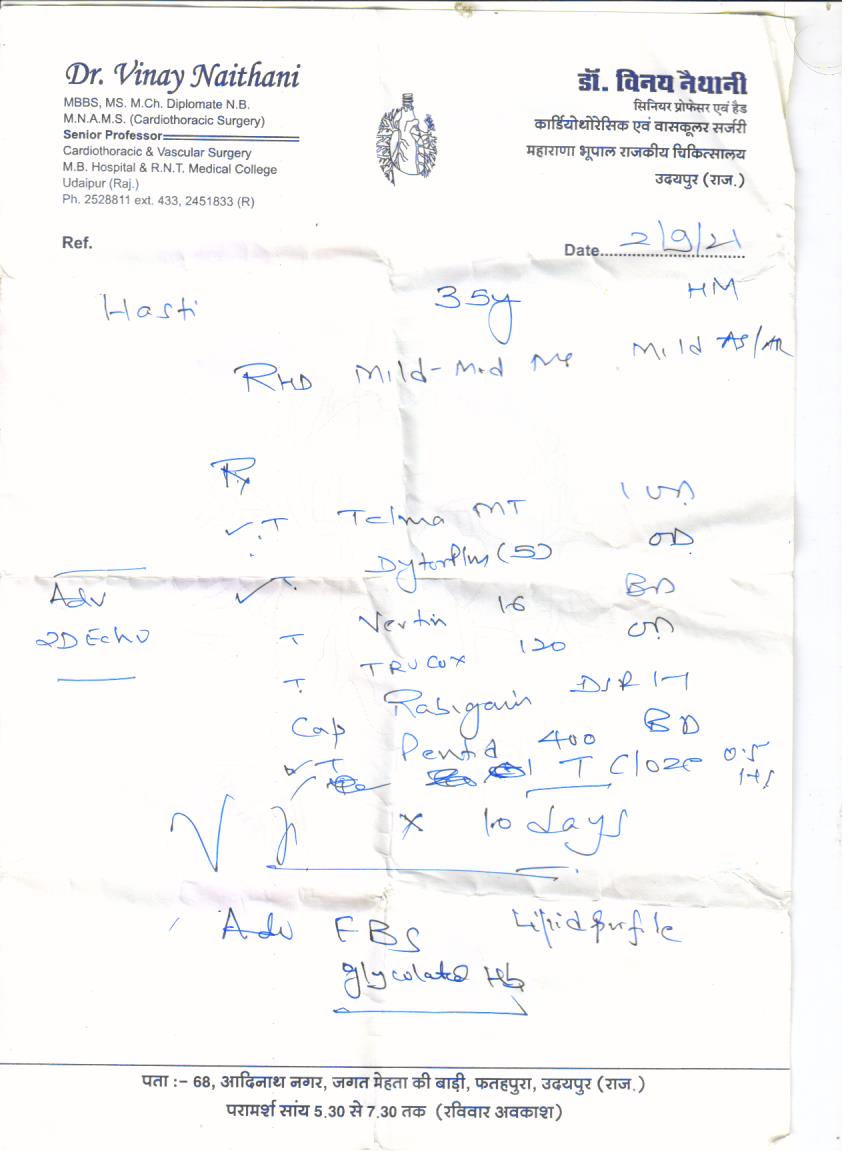 Dr. Vinay Naithani
MBBS, MS. M.Ch. Diplomate N.B.
M.N.A.M.S. (Cardiothoracic Surgery)
Senior Professor
Cardiothoracic & Vascular Surgery
M.B. Hospital & R.N.T. Medical College
Udaipur (Raj.)
Ph. 2528811 ext. 433, 2451833 (R)
डॉ. विनय नैथानी
सिनियर प्रोफेसर एवं हैड
कार्डियोथोरेसिक एवं वासकूलर सर्जरी
महाराणा भूपाल राजकीय चिकित्सालय
उदयपुर (राज.)
Ref.
Date 2/9/21
Hasti 35y HM
RHD Mild-Mod MS Mild AS/AR
Rx
T Telma MT 1 OD
T. Dytorplus (5) OD
T Vertin 16 BD
T. TRUCOX 120 OD
Cap Rabigain DSR 1-1
T Pentid 400 BD
T Cloze 0.5 HS
Adv
2D Echo
x 10 days
Adv FBS Lipid Profile
glycolated Hb
पता :- 68, आदिनाथ नगर, जगत मेहता की बाड़ी, फतहपुरा, उदयपुर (राज.)
परामर्श सांय 5.30 से 7.30 तक (रविवार अवकाश)